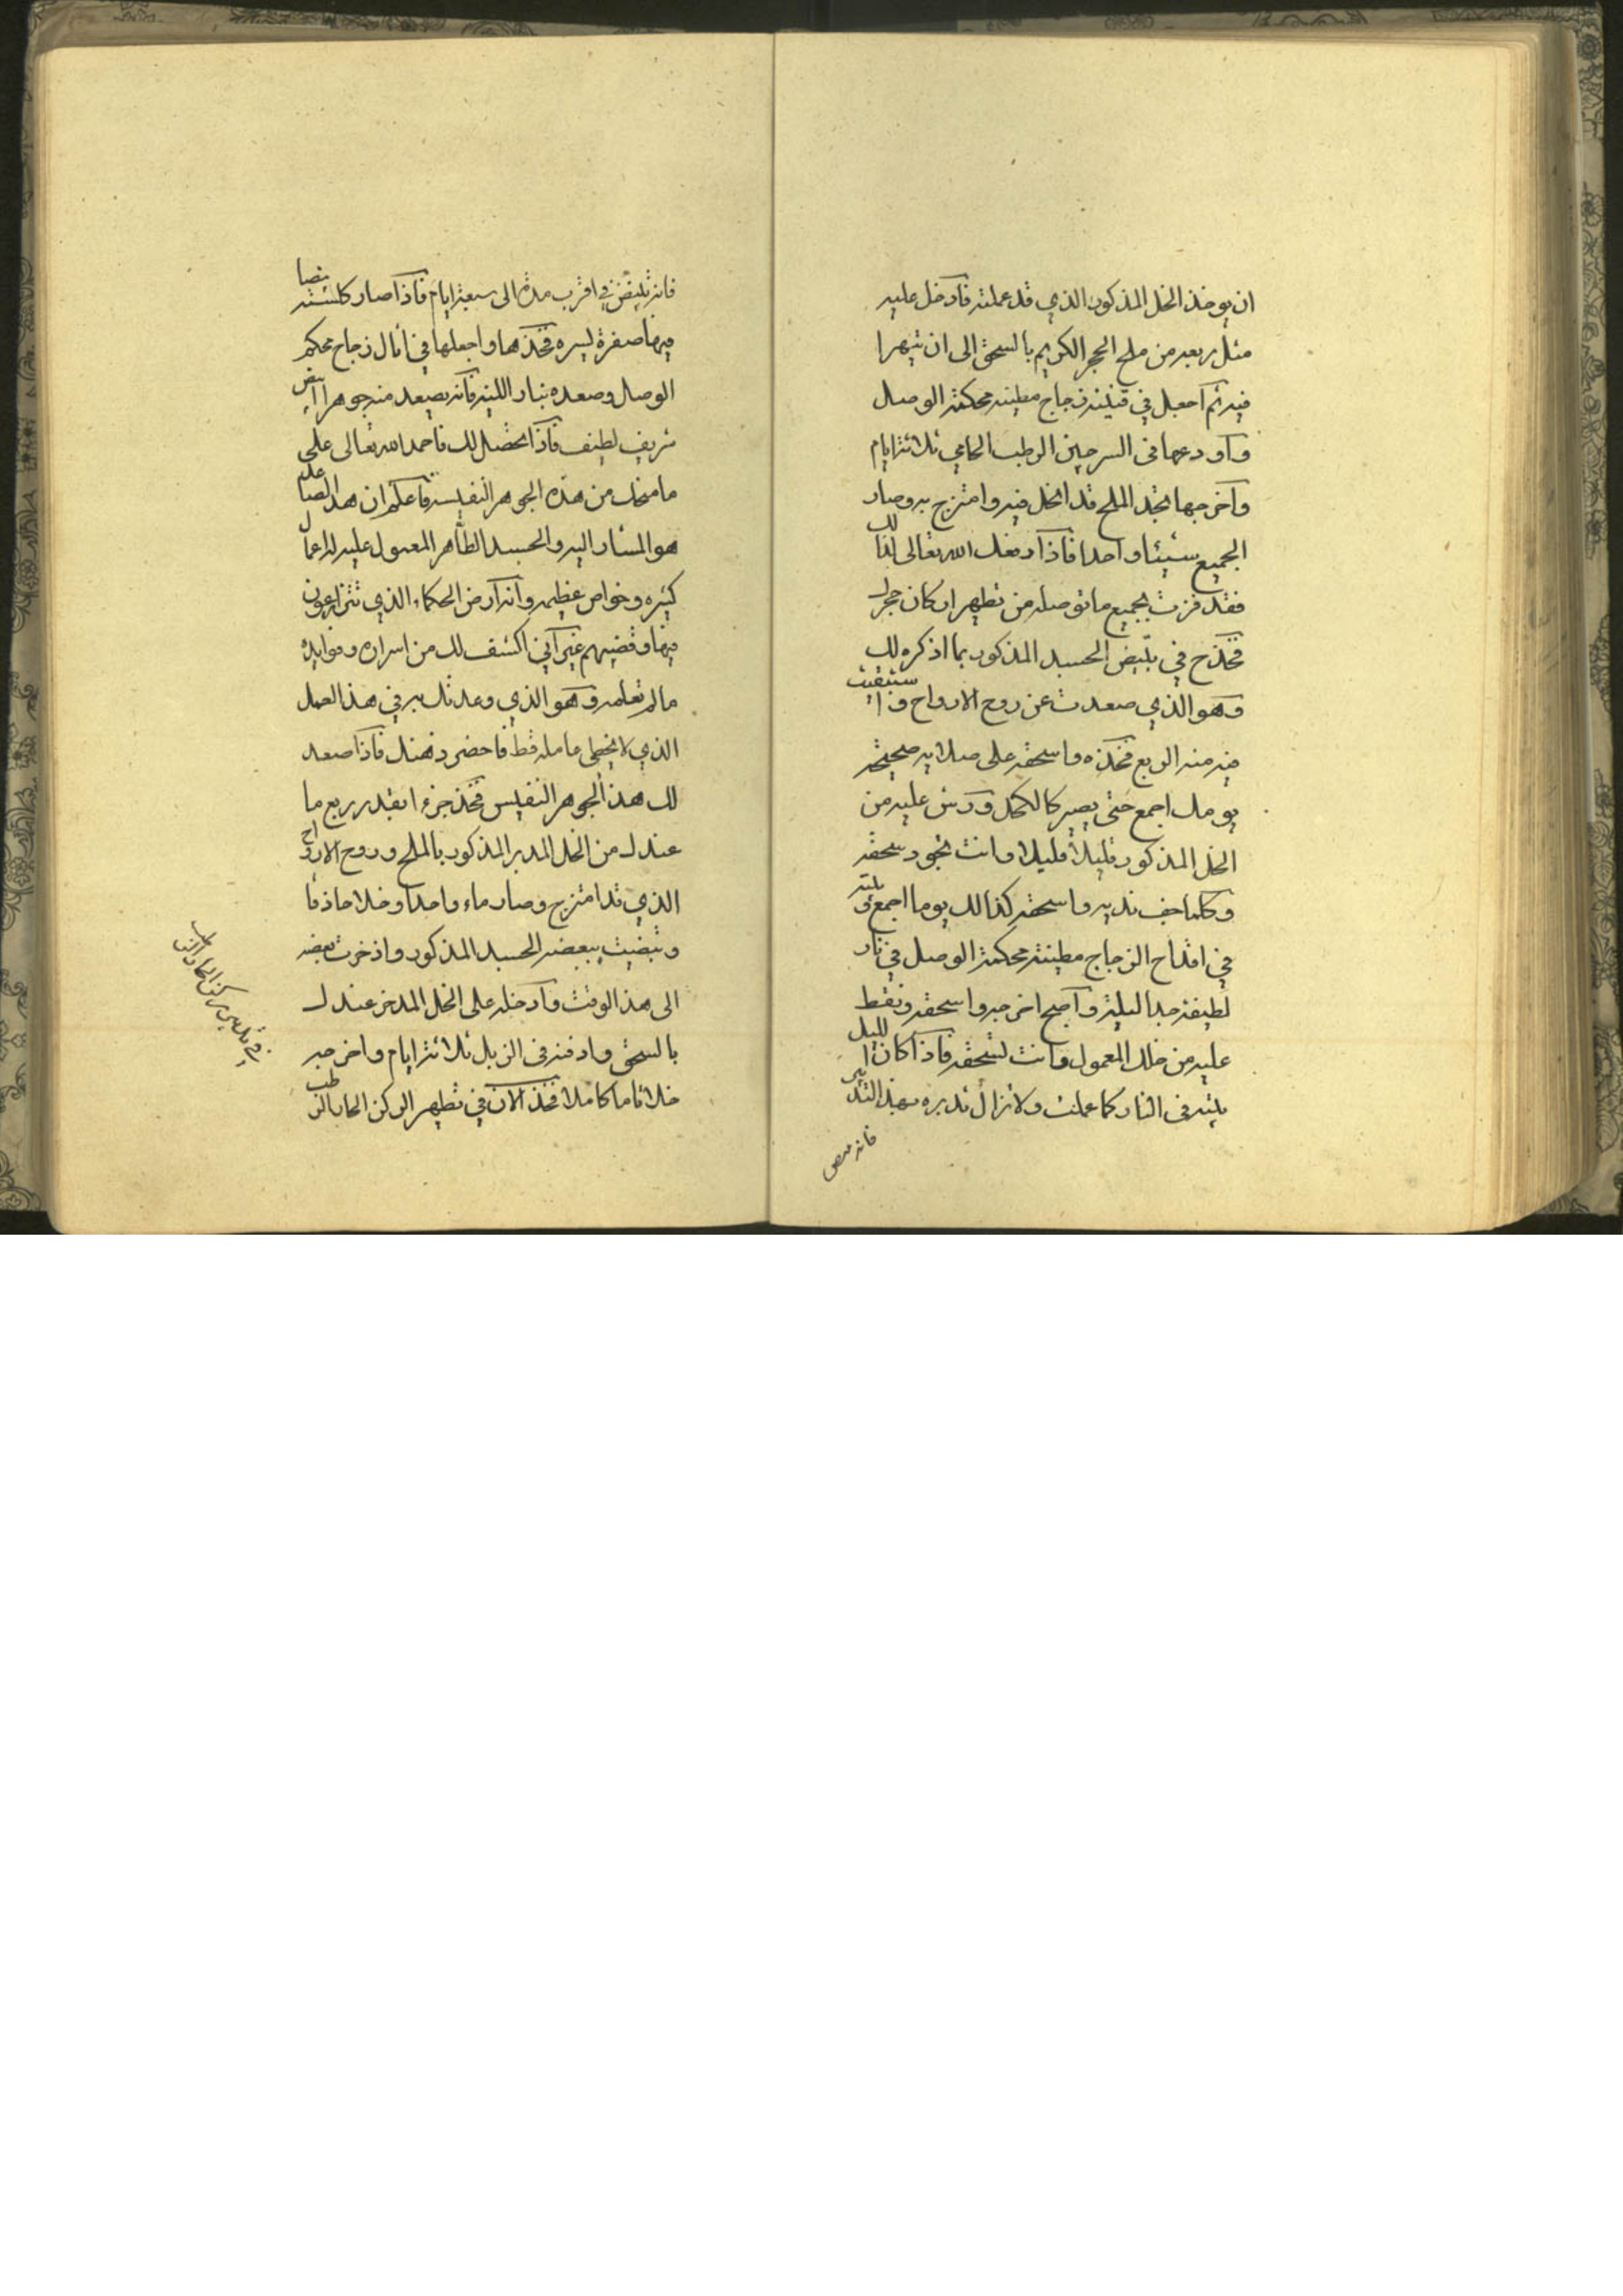 ان يوخذ الخل المذكور الذي قد عملته فادخل عليه
مثل ربعه من ملح الحجر الكريم بالسحق الى ان يتهرا
فيه ثم اجعل في قنينة زجاج مطينه محكمة الوصل
واودعها في السرجين الرطب الحامي ثلاثة ايام
واخرجها تجد الملح قد انحل فيه وامتزج به وصار
الجميع شيئا واحدا فاذا الله تعالى لك
فقد فزت بجميع ما توصله من تطهير اركان حجرك
فخذ ح في تبييض الجسد المذكور بما اذكره لك
وهو الذي صعدت عن روح الارواح واستبقيت
فيه منه الربع فخذه واسحقه على صلايه صحيحة
يومك اجمع حتى يصير كالكحل ورش عليه من
الخل المذكور قليلا قليلا وانت تجود سحقه
وكلما جف نديه واسحقه كذالك يوما اجمع وبيته
في اقداح الزجاج مطينة محكمة الوصل في نار
لطيفة جدا ليلة واصبح اخرجه واسحقه ونقط
عليه من خلك المعمول وانت تسحقه فاذا كان الليل
بيته في النار كما عملت ولا تزال تدبره بهذا التدبير
فانه
فانه يبيض في اقرب مدة الى سبعة ايام فاذا صار كلسته بيضا
فيها صفرة يسيره فخذها واجعلها في اثال زجاج محكم
الوصال وصعده بنار اللينه فانه يصعد منه جوهرا ابيض
شريف لطيف فاذا تحصل لك فاحمد الله تعالى على
ما منحك من هذه الجوهر النفيسه فاعلم ان هذا الصاعد
هو المشار اليه والجسد الطاهر المعول عليه للاعمال
كثيره وخواص عظيمه وانه ارض الحكماء الذي يزرعون
فيها وفضتهم غير اني اكشف لك من اسراره وفوايده
ما لم تعلمه وهو الذي وعدتك به في هذا العمل
الذي لا يخطى عامله قط فاحضر ذهنك فاذا صعد
لك هذا الجوهر النفيس فخذ جزءا بقدر ربع ما
عندك من الخل المدبر المذكور بالملح وروح الارواح
الذي قد امتزج وصار ماء واحدا وخلا حاذقا
وبيضت ببعضه الجسد المذكور واذخرت بعضه
الى هذا الوقت وادخله على الخل المدخر عندك
بالسحق وادفنه في الزبل ثلاثة ايام واخرجه
خلا تاما كاملا فخذ الان في تطهير الركن الحار الرطب
في الركن الحار الرطب